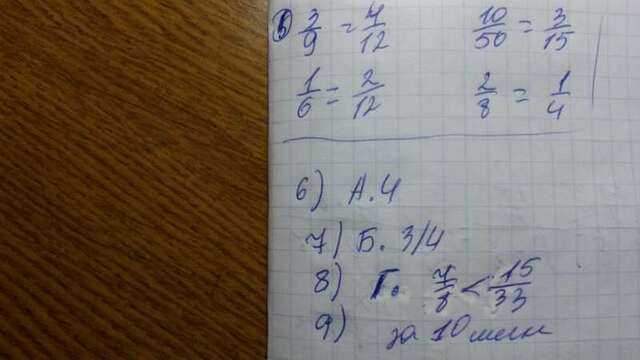 3/9 = 4/12 10/50 = 3/15
1/6 = 2/12 2/8 = 1/4
6) А. 4
7) Б. 3/4
8) Г. 7/8 < 15/33
9) за 10 мин